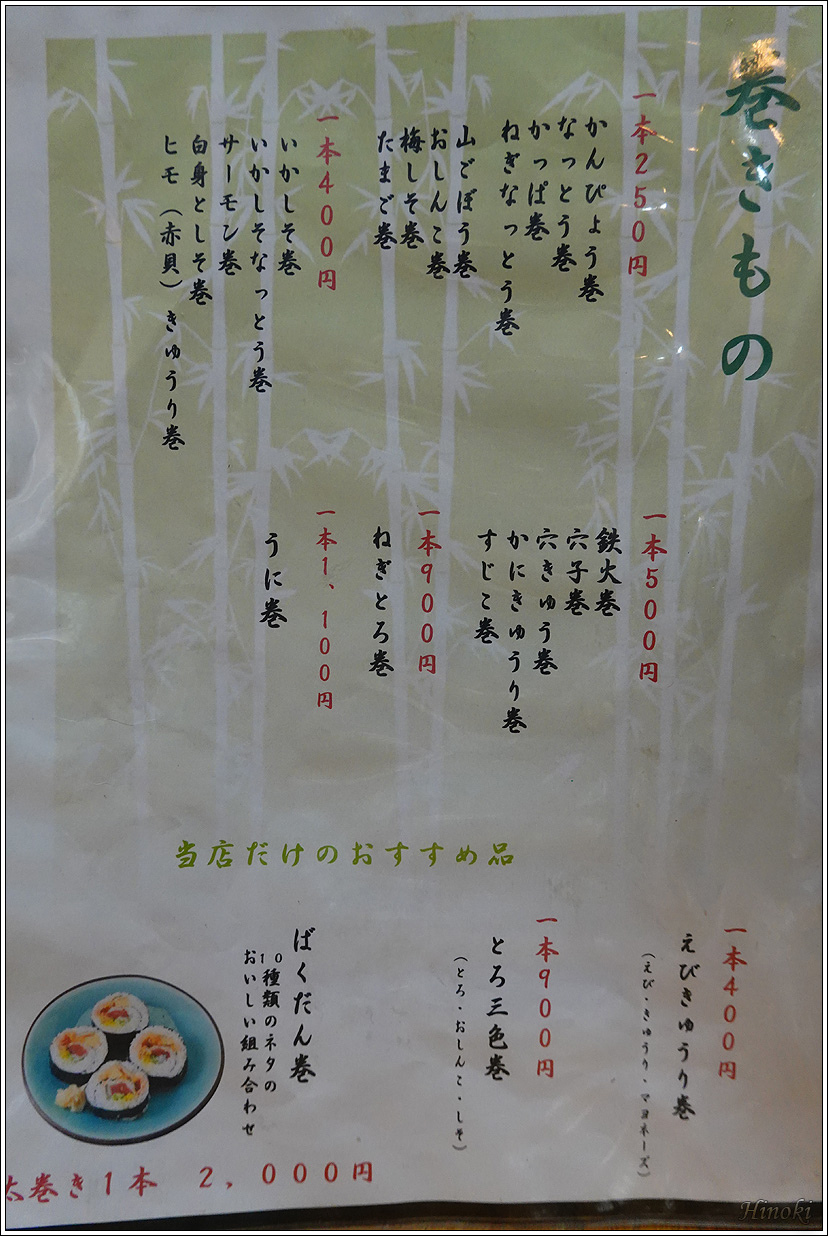 巻きもの
一本250円
かんぴょう巻
なっとう巻
かっぱ巻
ねぎなっとう巻
山ごぼう巻
おしんこ巻
梅しそ巻
たまご巻
一本400円
いかしそ巻
いかしそなっとう巻
サーモン巻
白身としそ巻
ヒモ(赤貝)きゅうり巻
一本500円
鉄火巻
穴子巻
穴きゅう巻
かにきゅうり巻
すじこ巻
一本900円
ねぎとろ巻
一本1、100円
うに巻
当店だけのおすすめ品
一本400円
えびきゅうり巻
(えび・きゅうり・マヨネーズ)
一本900円
とろ三色巻
(とろ・おしんこ・しそ)
ばくだん巻
10種類のネタの
おいしい組み合わせ
太巻き1本 2,000円
Hinoki